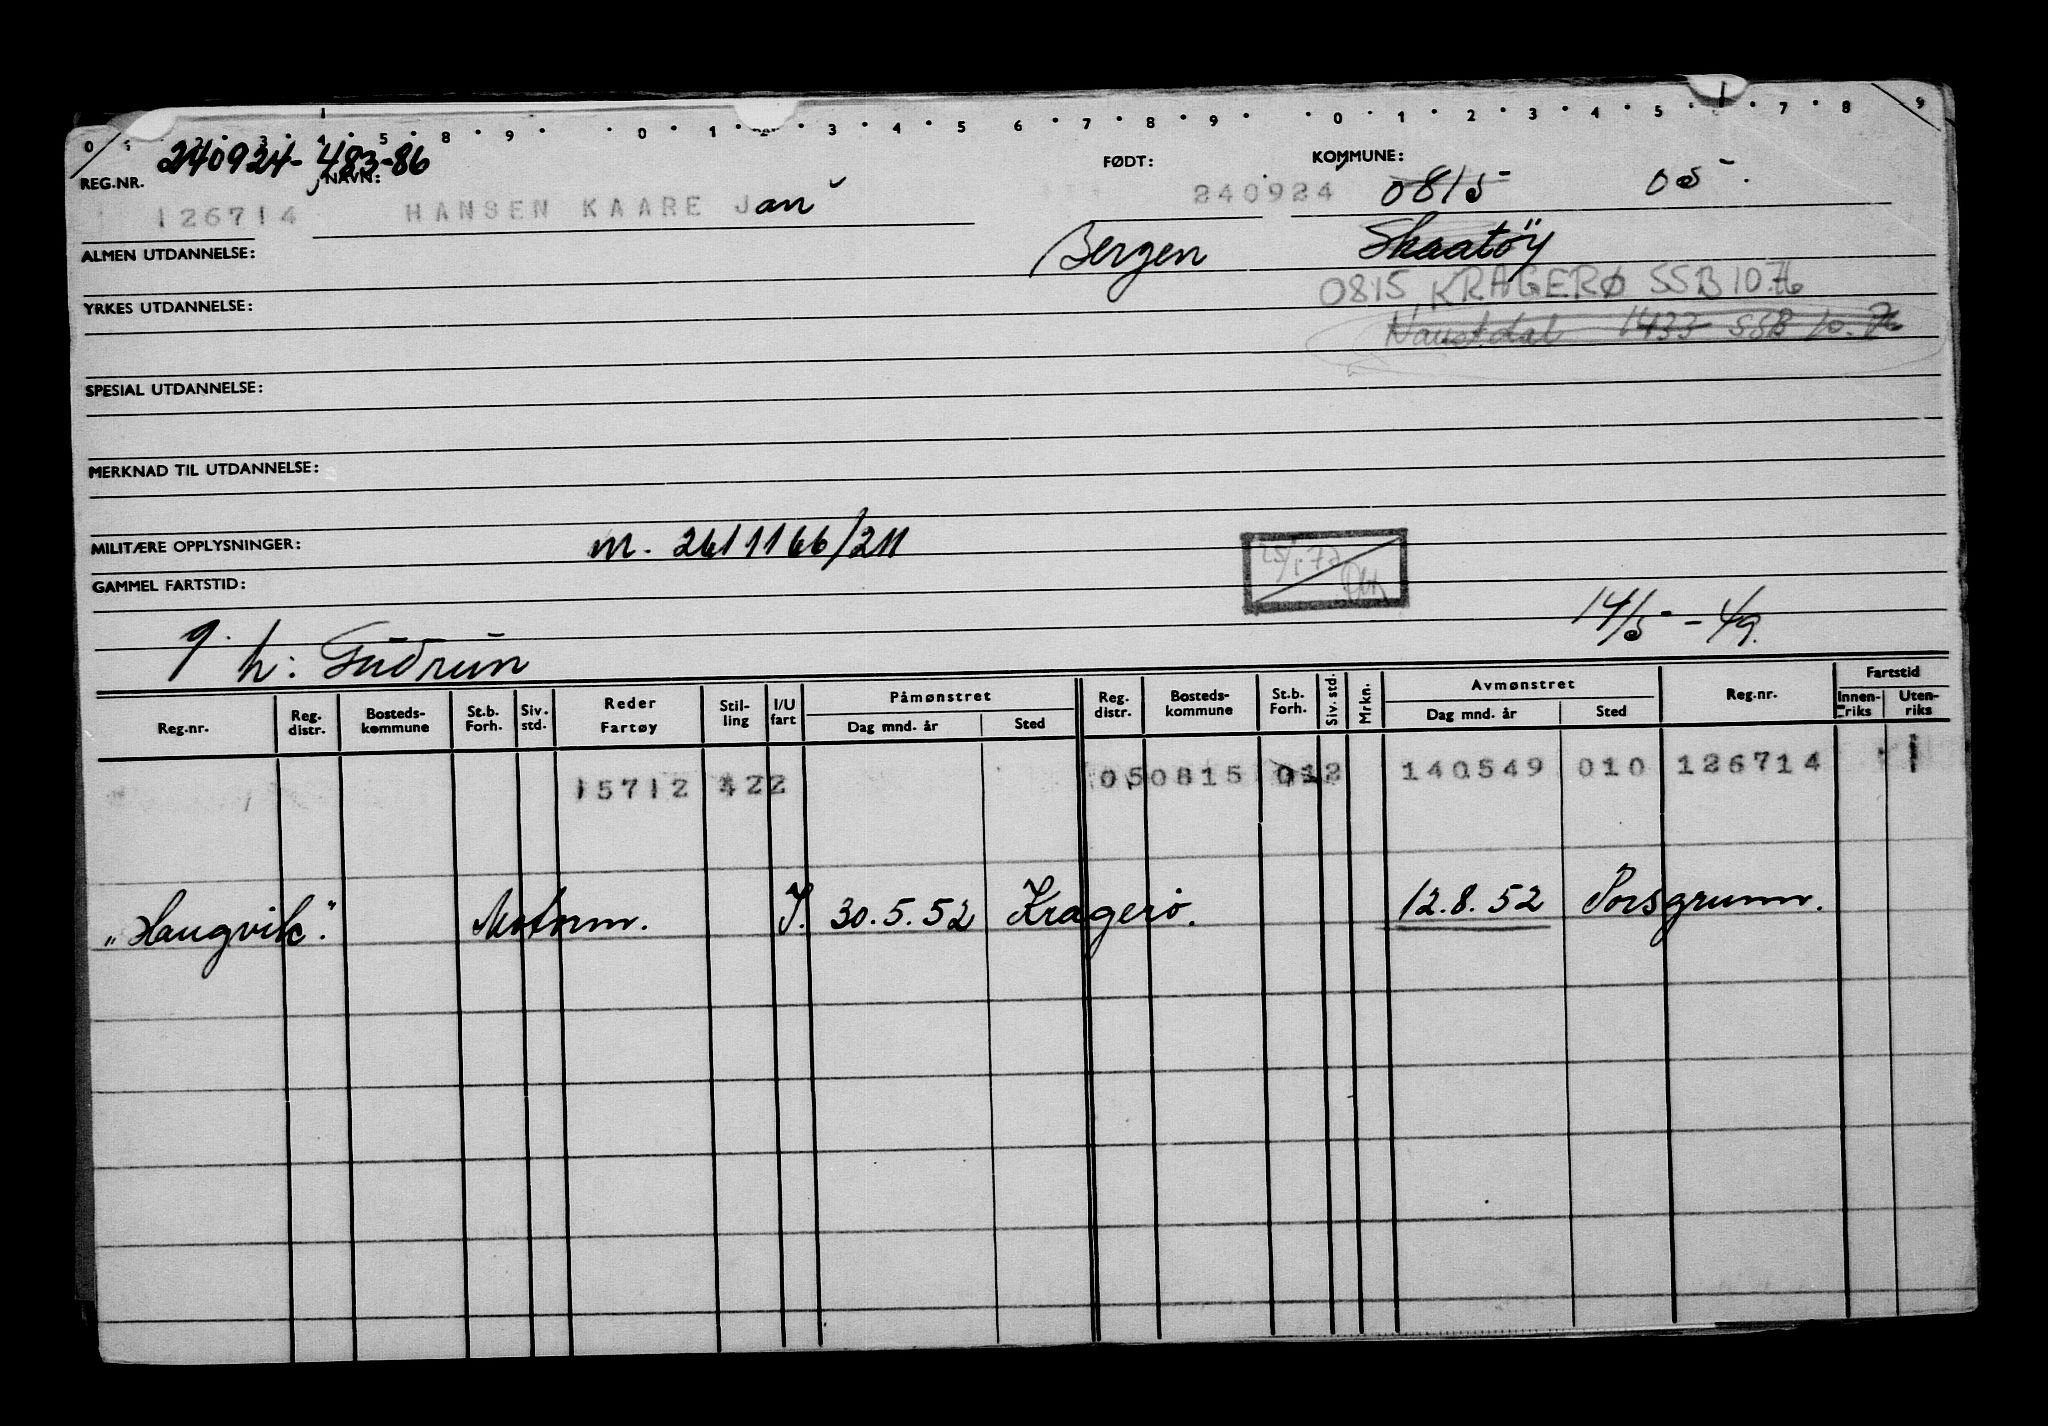 0 1 3 4 5 8 9 0 1 2 3 4 5 6 7 8 9 0 1 2 3 4 5 7 8 9
240924-483-86
REG.NR. NAVN: FØDT: KOMMUNE:
126714 HANSEN KAARE Jan 240924 0815 05.
ALMEN UTDANNELSE: Bergen Skaatøy
YRKES UTDANNELSE: 0815 KRAGERØ SSB 10.76
Naustdal 1433 SSB 10.76
SPESIAL UTDANNELSE:
MERKNAD TIL UTDANNELSE:
MILITÆRE OPPLYSNINGER: m. 2611166/211
GAMMEL FARTSTID:
14/5-49.
g. h: Gudrun
Reg.nr. Reg. distr. Bosteds- kommune St.b. Forh. Siv. std. Reder Fartøy Stil- ling I/U fart Påmønstret Dag mnd. år Sted Reg. distr. Bosteds- kommune St.b. Forh. Siv. std. Mrkn. Avmønstret Dag mnd. år Sted Reg.nr. Fartstid Innen- riks Uten- riks
15712 422 050815 012 140549 010 126714 1
"Haugvik". Motorm. I. 30.5.52 Kragerø. 12.8.52 Porsgrunn.